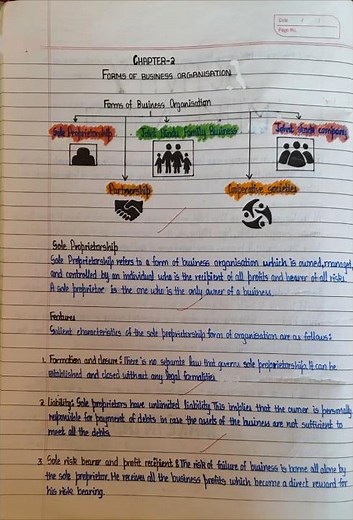 Date / /
Page No.
CHAPTER-2
FORMS OF BUSINESS ORGANISATION
Forms of Business Organisation
Sole Proprietorship
Joint Hindu Family Business
Joint Stock company
Partnership
Cooperative societies
Sole Proprietorship
Sole Proprietorship refers to a form of business organisation which is owned, managed,
and controlled by an individual who is the recipient of all profits and bearer of all risks.
A sole proprietor is the one who is the only owner of a business.
Features
Salient characteristics of the sole proprietorship form of organisation are as follows:
1. Formation and closure: There is no separate law that governs sole proprietorship. It can be
established and closed without any legal formalities.
2. Liability: Sole proprietors have unlimited liability. This implies that the owner is personally
responsible for payment of debts in case the assets of the business are not sufficient to
meet all the debts.
3. Sole risk bearer and profit recipient: The risk of failure of business is borne all alone by
the sole proprietor. He receives all the business profits which become a direct reward for
his risk bearing.